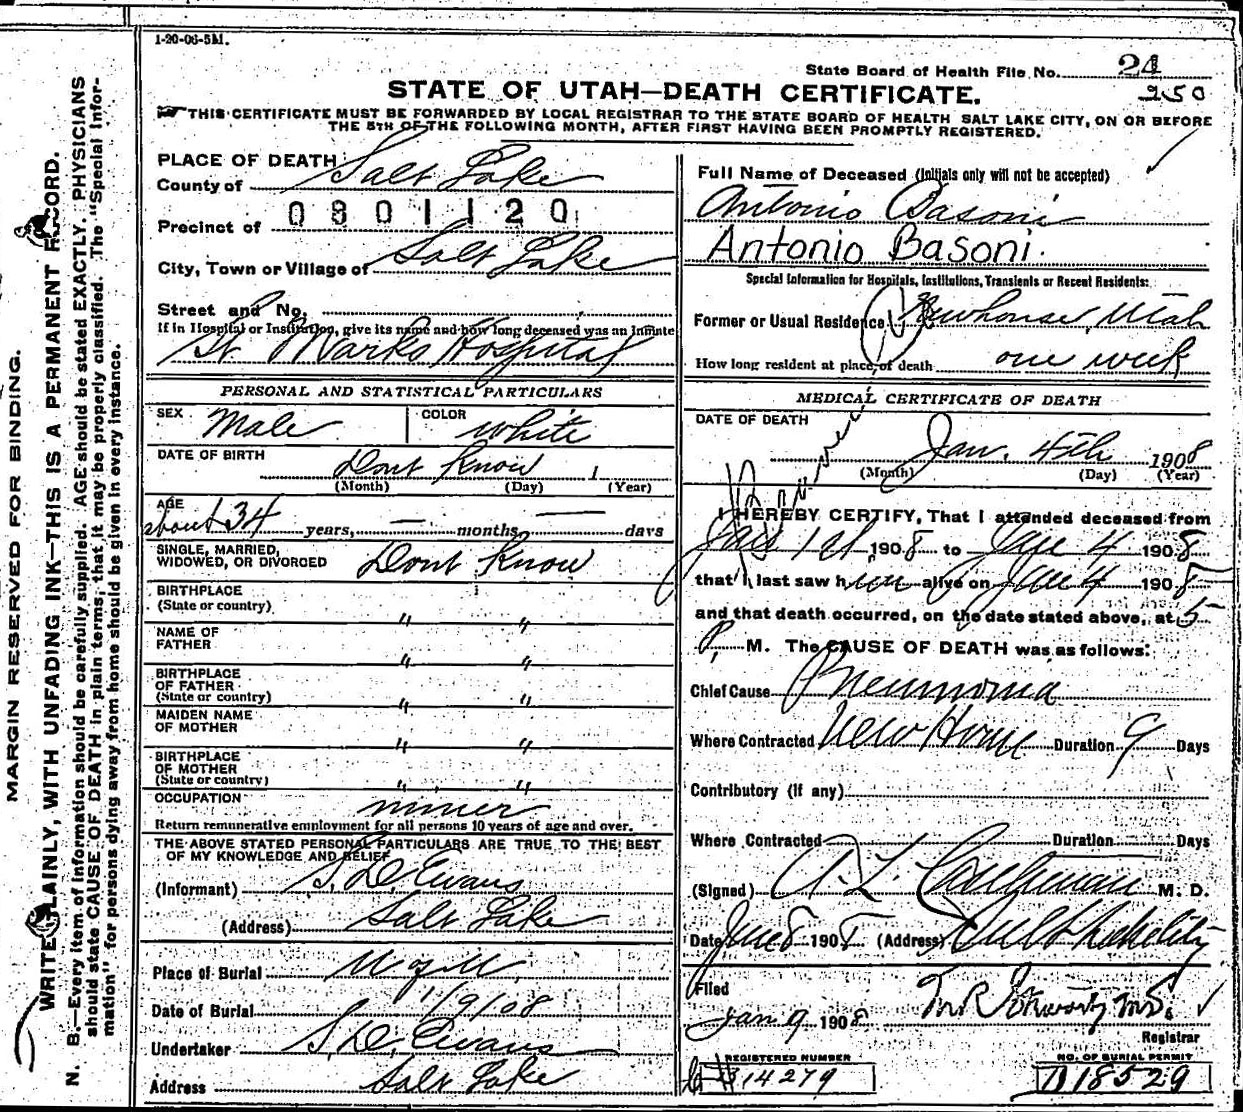 1-20-06-5M.
State Board of Health File No. 24
250
STATE OF UTAH—DEATH CERTIFICATE.
THIS CERTIFICATE MUST BE FORWARDED BY LOCAL REGISTRAR TO THE STATE BOARD OF HEALTH SALT LAKE CITY, ON OR BEFORE
THE 5TH OF THE FOLLOWING MONTH, AFTER FIRST HAVING BEEN PROMPTLY REGISTERED.
MARGIN RESERVED FOR BINDING.
WRITE PLAINLY, WITH UNFADING INK—THIS IS A PERMANENT RECORD.
N. B.—Every item of information should be carefully supplied. AGE should be stated EXACTLY. PHYSICIANS
should state CAUSE OF DEATH in plain terms, that it may be properly classified. The "Special Infor-
mation" for persons dying away from home should be given in every instance.
PLACE OF DEATH:
County of Salt Lake
0801120
Precinct of
City, Town or Village of Salt Lake
Street and No.
If in Hospital or Institution, give its name and how long deceased was an inmate
St. Marks Hospital
PERSONAL AND STATISTICAL PARTICULARS
SEX Male COLOR White
DATE OF BIRTH Dont Know 1
(Month) (Day) (Year)
AGE
about 34 years, — months, — days
SINGLE, MARRIED,
WIDOWED, OR DIVORCED Dont Know
BIRTHPLACE
(State or country) " "
NAME OF
FATHER " "
BIRTHPLACE
OF FATHER
(State or country) " "
MAIDEN NAME
OF MOTHER " "
BIRTHPLACE
OF MOTHER
(State or country) " "
OCCUPATION miner
Return remunerative employment for all persons 10 years of age and over.
THE ABOVE STATED PERSONAL PARTICULARS ARE TRUE TO THE BEST
OF MY KNOWLEDGE AND BELIEF
(Informant) S. D. Evans
(Address) Salt Lake
Place of Burial
Date of Burial 1/9/08
Undertaker S. D. Evans
Address Salt Lake
Full Name of Deceased (Initials only will not be accepted)
Antonio Basoni
Antonio Basoni.
Special Information for Hospitals, Institutions, Transients or Recent Residents:
Former or Usual Residence Newhouse, Utah
How long resident at place of death one week
MEDICAL CERTIFICATE OF DEATH
DATE OF DEATH
Jan. 4th 1908
(Month) (Day) (Year)
I HEREBY CERTIFY, That I attended deceased from
Jan 1st 1908 to Jan 4 1908
that I last saw him alive on Jan 4 1908
and that death occurred, on the date stated above, at 5
P. M. The CAUSE OF DEATH was as follows:
Chief Cause Pneumonia
Where Contracted New House Duration 9 Days
Contributory (if any)
Where Contracted Duration Days
(Signed) A. L. M. D.
Date Jan 8 1908 (Address)
Filed
Jan 9 1908
Registrar
REGISTERED NUMBER
14279
NO. OF BURIAL PERMIT
D18529